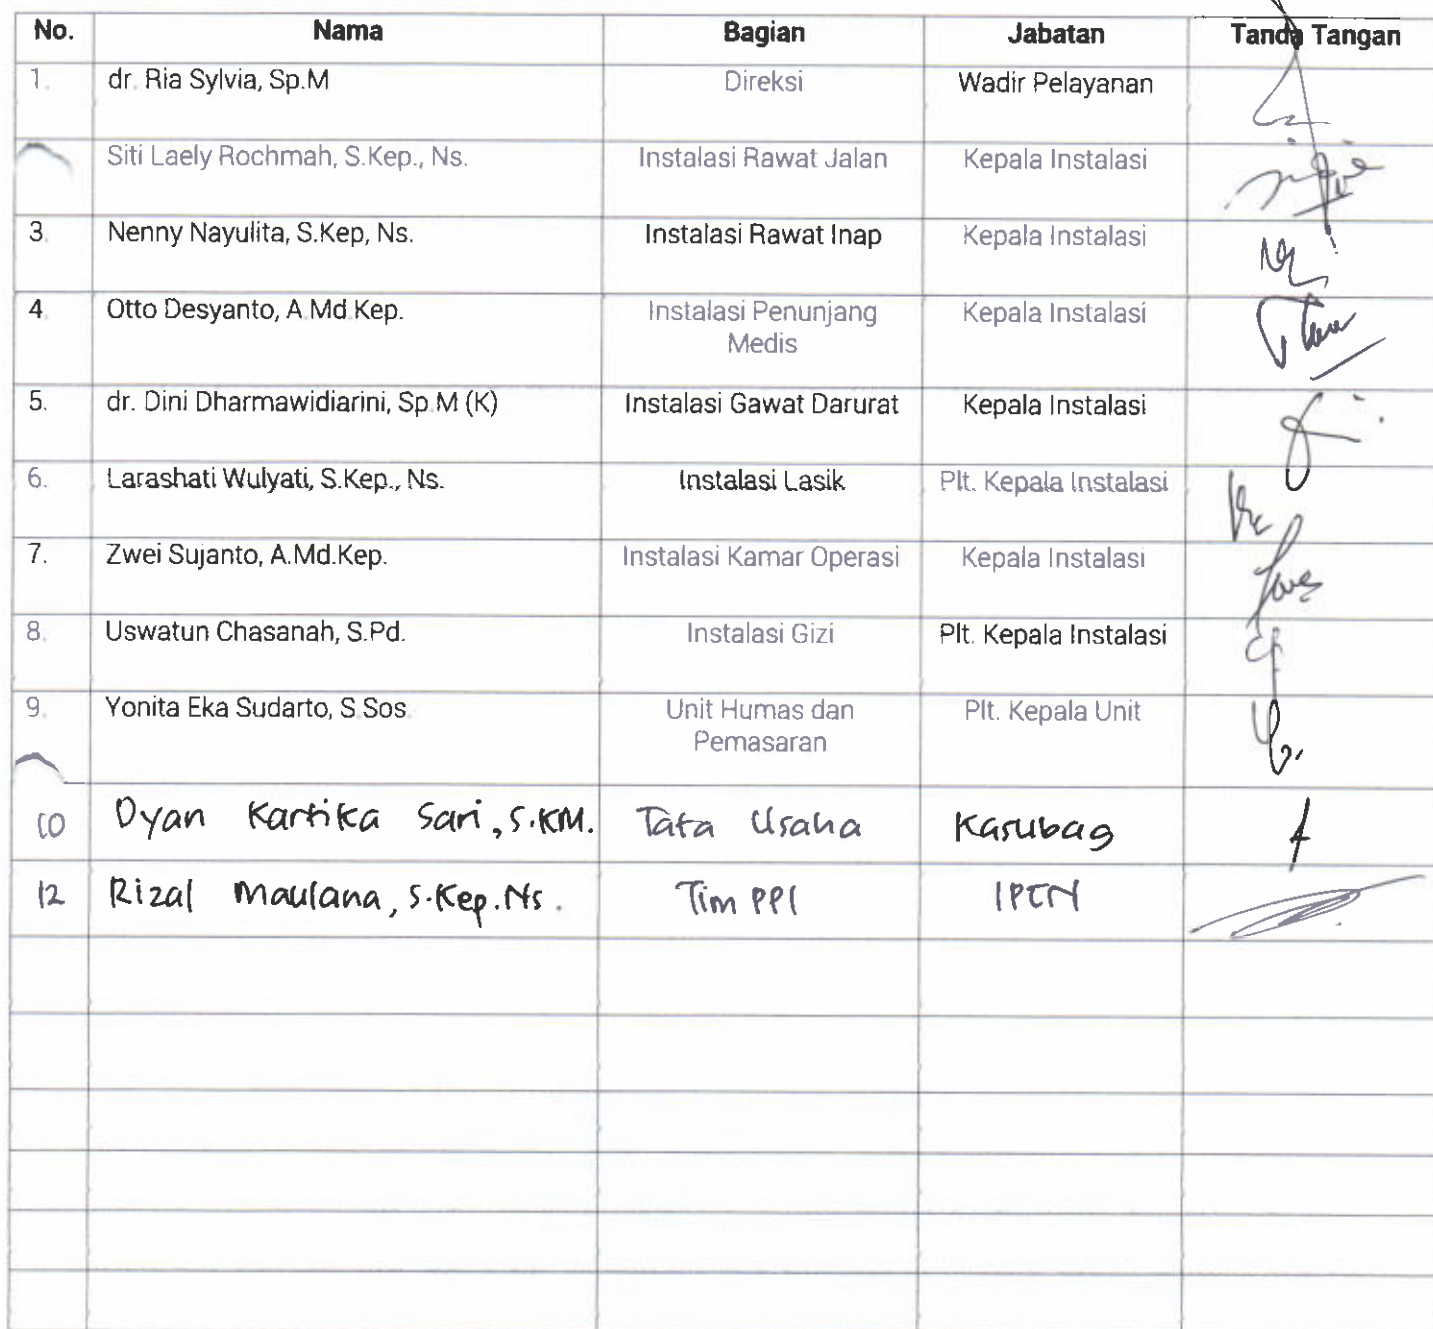 No. Nama Bagian Jabatan Tanda Tangan
1. dr. Ria Sylvia, Sp.M Direksi Wadir Pelayanan
Siti Laely Rochmah, S.Kep., Ns. Instalasi Rawat Jalan Kepala Instalasi
3. Nenny Nayulita, S.Kep, Ns. Instalasi Rawat Inap Kepala Instalasi
4. Otto Desyanto, A.Md.Kep. Instalasi Penunjang Kepala Instalasi
Medis
5. dr. Dini Dharmawidiarini, Sp.M (K) Instalasi Gawat Darurat Kepala Instalasi
6. Larashati Wulyati, S.Kep., Ns. Instalasi Lasik Plt. Kepala Instalasi
7. Zwei Sujanto, A.Md.Kep. Instalasi Kamar Operasi Kepala Instalasi
8. Uswatun Chasanah, S.Pd. Instalasi Gizi Plt. Kepala Instalasi
9. Yonita Eka Sudarto, S.Sos. Unit Humas dan Plt. Kepala Unit
Pemasaran
10 Dyan Kartika Sari, S.KM. Tata Usaha Kasubag
12 Rizal Maulana, S.Kep.Ns. Tim PPI IPCN